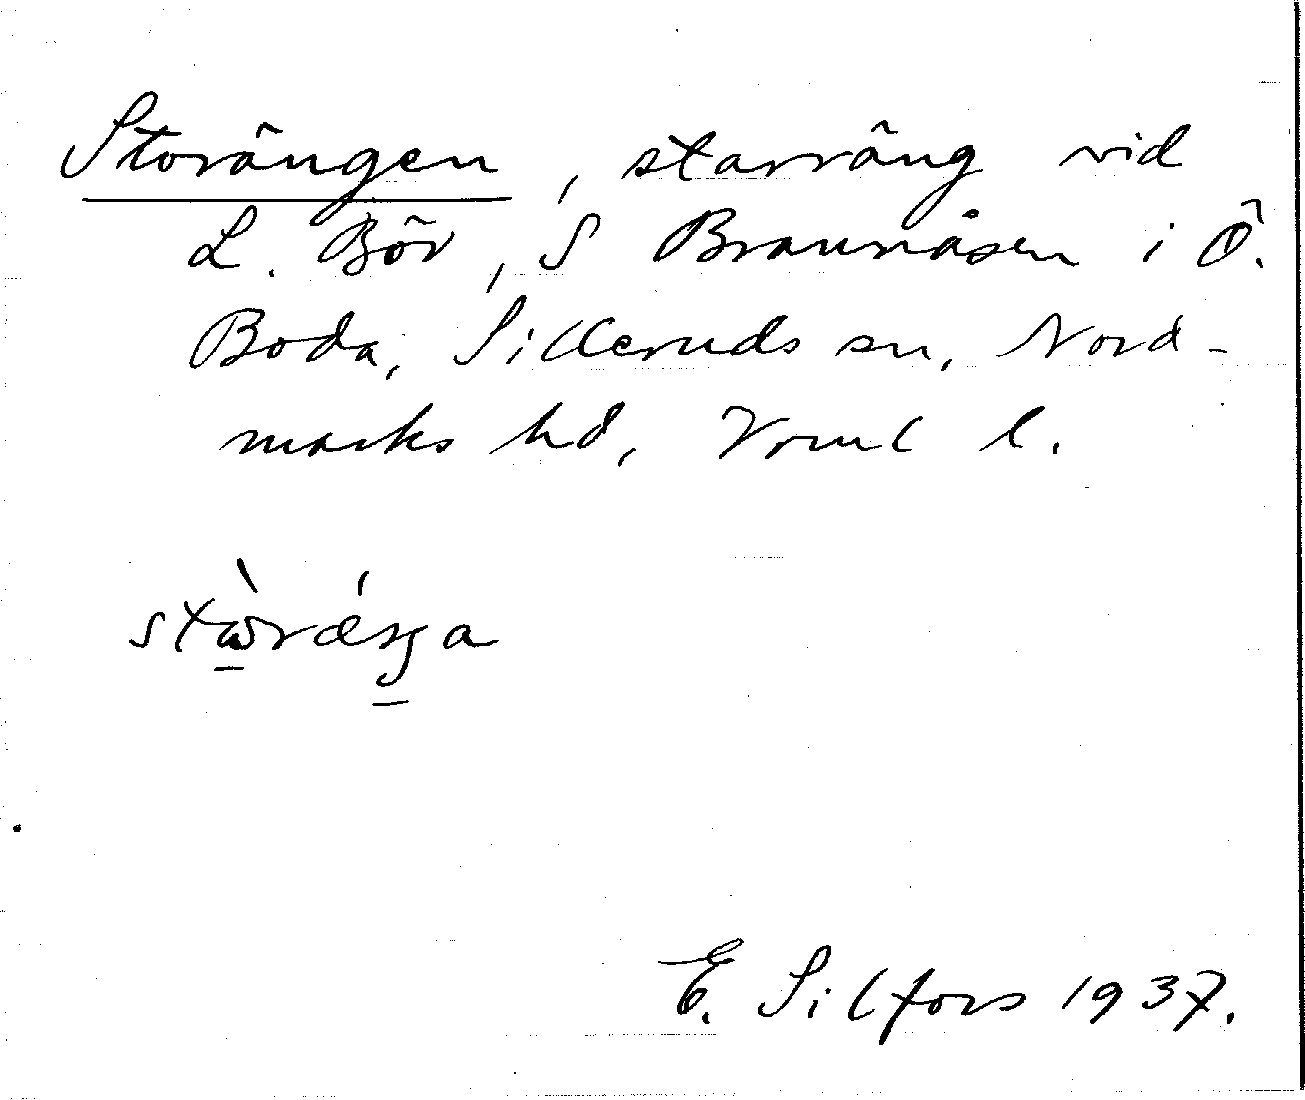 Storängen, starräng vid
L. Bör, S Braunåsen i Ö.
Boda, Silleruds sn, Nord-
marks hd, Vrml l.
stὼrǽŋa
E. Silfors 1937.